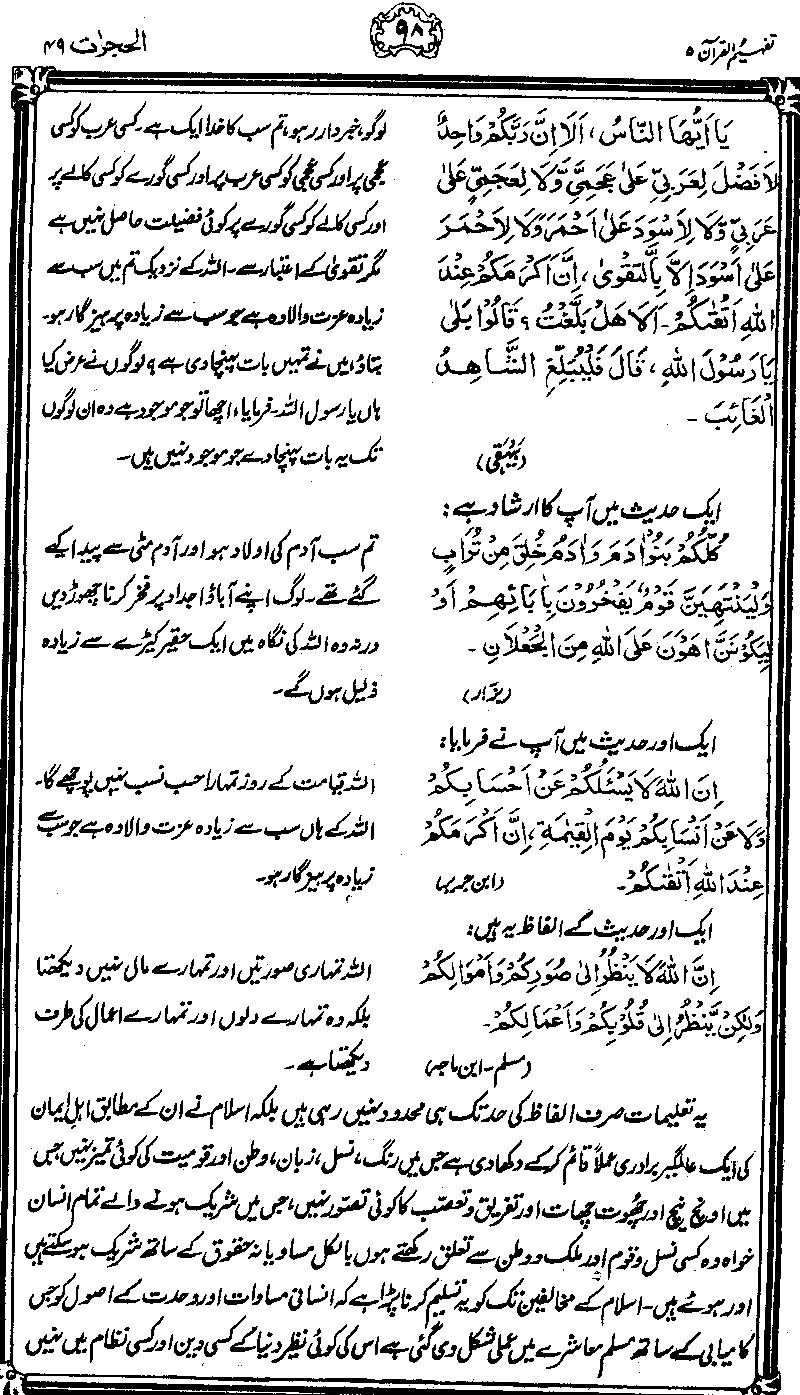 تفہیم القرآن ۵
۹۸
الحجرات ۴۹
یَا اَیُّهَا النَّاسُ، اَلَا اِنَّ رَبَّکُمْ وَاحِدٌ
لَا فَضْلَ لِعَرَبِیٍّ عَلیٰ عَجَمِیٍّ وَّلَا لِعَجَمِیٍّ عَلیٰ
عَرَبِیٍّ وَّلَا لِاَسْوَدَ عَلیٰ اَحْمَرَ وَلَا لِاَحْمَرَ
عَلیٰ اَسْوَدَ اِلَّا بِالتَّقْویٰ، اِنَّ اَکْرَمَکُمْ عِنْدَ
اللهِ اَتْقٰىکُمْ۔ اَلَا هَلْ بَلَّغْتُ؟ قَالُوْا بَلیٰ
یَا رَسُوْلَ اللهِ، قَالَ فَلْیُبَلِّغِ الشَّاهِدُ
الْغَائِبَ۔
(بیہقی)
لوگو، خبردار رہو، تم سب کا خدا ایک ہے۔ کسی عرب کو کسی
عجمی پر اور کسی عجمی کو کسی عرب پر اور کسی گورے کو کسی کالے پر
اور کسی کالے کو کسی گورے پر کوئی فضیلت حاصل نہیں ہے
مگر تقویٰ کے اعتبار سے۔ اللہ کے نزدیک تم میں سب سے
زیادہ عزت والا وہ ہے جو سب سے زیادہ پرہیزگار ہو۔
بتاؤ، میں نے تمہیں بات پہنچا دی ہے؟ لوگوں نے عرض کیا
ہاں یا رسول اللہ۔ فرمایا، اچھا تو جو موجود ہے وہ ان لوگوں
تک یہ بات پہنچا دے جو موجود نہیں ہیں۔
ایک حدیث میں آپ کا ارشاد ہے:
کُلُّکُمْ بَنُوْا دَمَ وَاٰدَمُ خُلِقَ مِنْ تُرَابٍ
وَلْیَنْتَهِیَنَّ قَوْمٌ یَفْخَرُوْنَ بِاٰبَائِهِمْ اَوْ
لَیَکُوْنَنَّ اَهْوَنَ عَلَی اللهِ مِنَ الْجُعْلَانِ۔
(بزّار)
تم سب آدم کی اولاد ہو اور آدم مٹی سے پیدا کیے
گئے تھے۔ لوگ اپنے آباؤ اجداد پر فخر کرنا چھوڑ دیں
ورنہ وہ اللہ کی نگاہ میں ایک حقیر کیڑے سے زیادہ
ذلیل ہوں گے۔
ایک اور حدیث میں آپ نے فرمایا:
اِنَّ اللهَ لَا یَسْئَلُکُمْ عَنْ اَحْسَابِکُمْ
وَلَا عَنْ اَنْسَابِکُمْ یَوْمَ الْقِیٰمَةِ، اِنَّ اَکْرَمَکُمْ
عِنْدَ اللهِ اَتْقٰىکُمْ۔ (ابن جریر)
اللہ قیامت کے روز تمہارا حسب نسب نہیں پوچھے گا۔
اللہ کے ہاں سب سے زیادہ عزت والا وہ ہے جو سب سے
زیادہ پرہیزگار ہو۔
ایک اور حدیث کے الفاظ یہ ہیں:
اِنَّ اللهَ لَا یَنْظُرُ اِلیٰ صُوَرِکُمْ وَاَمْوَالِکُمْ
وَلٰکِنْ یَّنْظُرُ اِلیٰ قُلُوْبِکُمْ وَاَعْمَالِکُمْ۔
(مسلم۔ ابن ماجہ)
اللہ تمہاری صورتیں اور تمہارے مال نہیں دیکھتا
بلکہ وہ تمہارے دلوں اور تمہارے اعمال کی طرف
دیکھتا ہے۔
یہ تعلیمات صرف الفاظ کی حد تک ہی محدود نہیں رہی ہیں بلکہ اسلام نے ان کے مطابق اہل ایمان
کی ایک عالمگیر برادری عملاً قائم کر کے دکھا دی ہے جس میں رنگ، نسل، زبان، وطن اور قومیت کی کوئی تمیز نہیں، جس
میں اونچ نیچ اور چھوت چھات اور تفریق و تعصب کا کوئی تصور نہیں، جس میں شریک ہونے والے تمام انسان
خواہ وہ کسی نسل و قوم اور ملک و وطن سے تعلق رکھتے ہوں بالکل مساویانہ حقوق کے ساتھ شریک ہو سکتے ہیں
اور ہوئے ہیں۔ اسلام کے مخالفین تک کو یہ تسلیم کرنا پڑا ہے کہ انسانی مساوات اور وحدت کے اصول کو جس
کامیابی کے ساتھ مسلم معاشرے میں عملی شکل دی گئی ہے اس کی کوئی نظیر دنیا کے کسی دین اور کسی نظام میں نہیں